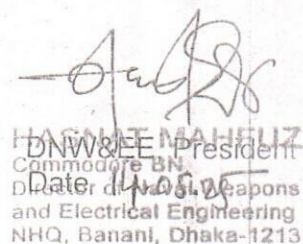 HASNAT MAHFUZ
DNW&EE President
Commodore BN
Date 14.05.25
Director of Naval Weapons
and Electrical Engineering
NHQ, Banani, Dhaka-1213